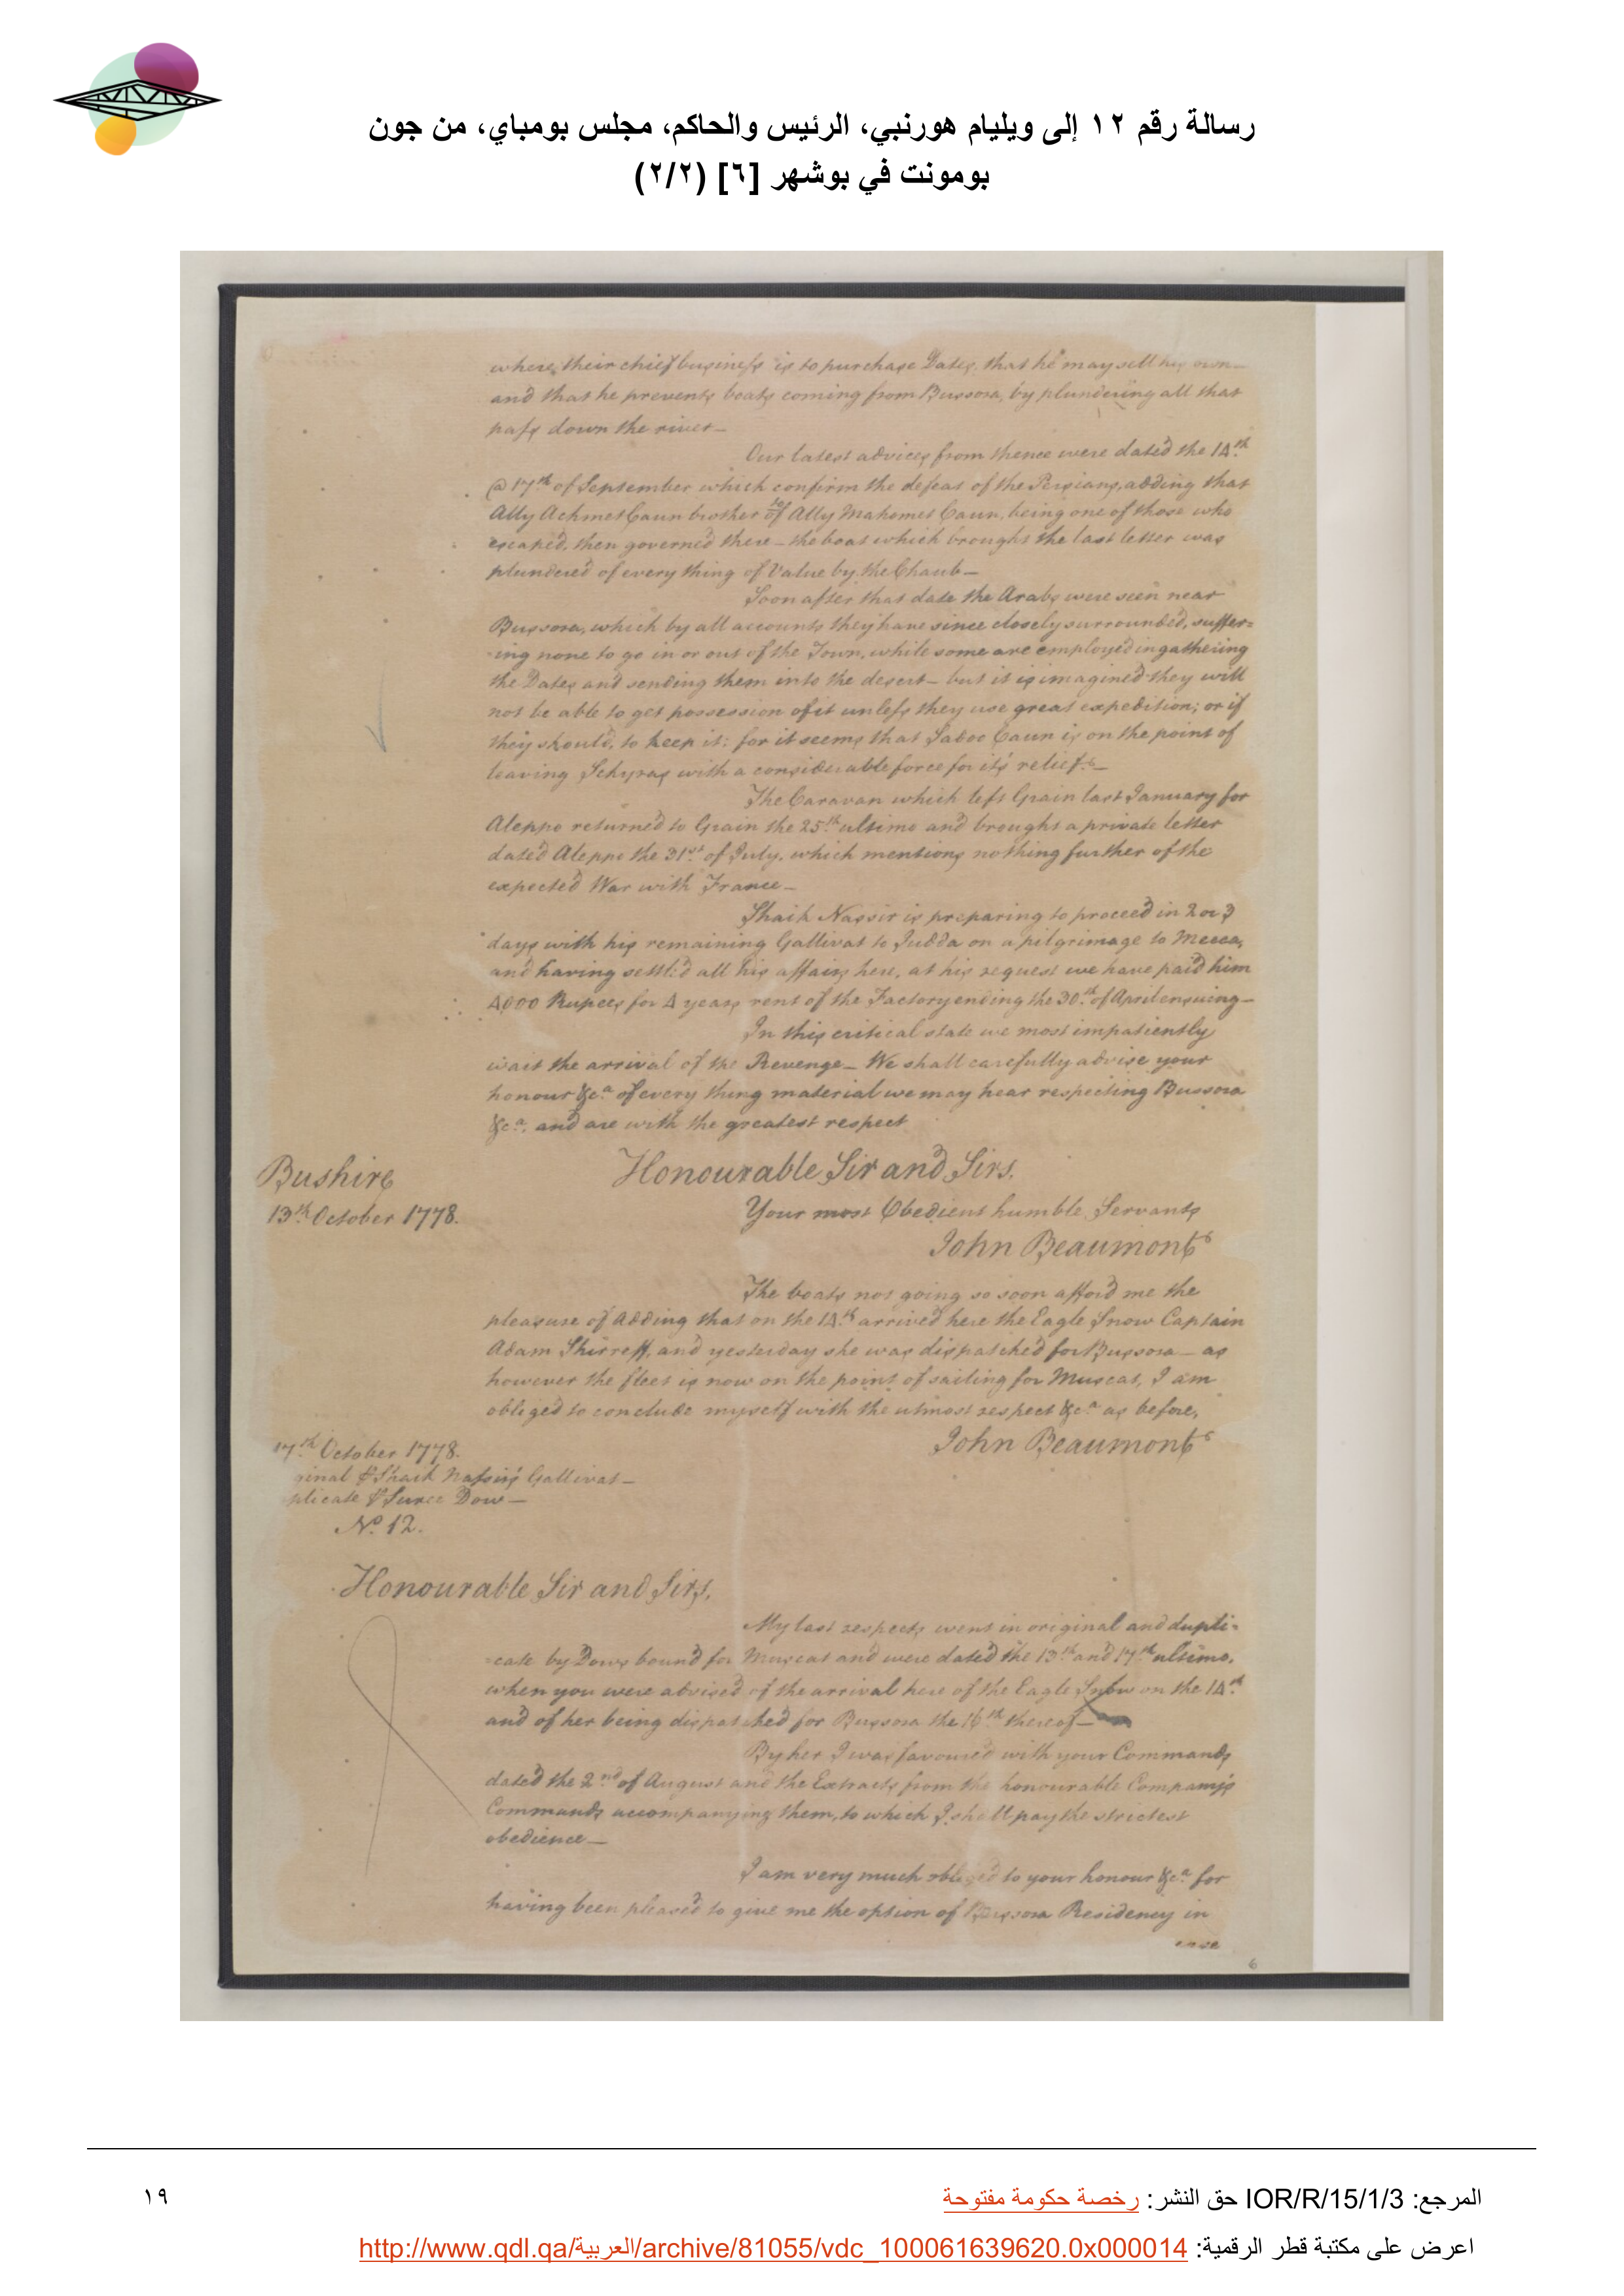 رسالة رقم ١٢ إلى ويليام هورنبي، الرئيس والحاكم، مجلس بومباي، من جون
بومونت في بوشهر [٦] (٢/٢)
where, their chief business is to purchase Dates, that he may sell his own—
and that he prevents boats coming from Bussora, by plundering all that
pass down the river—
Our latest advices from thence were dated the 14th
@ 17th of September which confirm the defeat of the Persians, adding that
Ally Achmet Caun brother to Ally Mahomet Caun, being one of those who
escaped, then governed there— the boat which brought the last letter was
plundered of every thing of Value by the Chaub—
Soon after that date the Arabs were seen near
Bussora, which by all accounts they have since closely surrounded, suffer=
=ing none to go in or out of the Town, while some are employed in gathering
the Dates and sending them into the desert— but it is imagined they will
not be able to get possession of it unless they use great expedition; or if
they should, to keep it: for it seems that Sadoo Caun is on the point of
leaving Schyras with a considerable force for it's relief.—
The Caravan which left Grain last January for
Aleppo returned to Grain the 25th ultimo and brought a private letter
dated Aleppo the 31st of July, which mentions nothing further of the
expected War with France—
Shaik Nassir is preparing to proceed in 2 or 3
days with his remaining Gallivat to Judda on a pilgrimage to Mecca,
and having settled all his affairs here, at his request we have paid him
4000 Rupees for 4 years rent of the Factory ending the 30th of April ensuing—
In this critical state we most impatiently
wait the arrival of the Revenge— We shall carefully advise your
honour &ca of every thing material we may hear respecting Bussora
&ca. and are with the greatest respect
Honourable Sir and Sirs,
Bushire
13th October 1778.
Your most Obedient humble Servants
John Beaumont
The boats not going so soon afford me the
pleasure of adding that on the 14th arrived here the Eagle Snow Captain
Adam Shirreff, and yesterday she was dispatched for Bussora— as
however the fleet is now on the point of sailing for Muscat, I am
obliged to conclude myself with the utmost respect &ca as before,
John Beaumont
17th October 1778.
ginal P Shaik Nassir's Gallivat—
plicate P Dow—
No. 12.
Honourable Sir and Sirs,
My last respects went in original and dupli=
=cate by Dows bound for Muscat and were dated the 13th and 17th ultimo,
when you were advised of the arrival here of the Eagle Snow on the 14th
and of her being dispatched for Bussora the 16th thereof—
By her I was favoured with your Commands
dated the 2nd of August and the Extracts from the honourable Company's
Commands accompanying them, to which I shall pay the strictest
obedience—
I am very much obliged to your honour &ca for
having been pleased to give me the option of Bussora Residency in
case
6
المرجع: IOR/R/15/1/3 حق النشر: رخصة حكومة مفتوحة
١٩
اعرض على مكتبة قطر الرقمية: http://www.qdl.qa/العربية/archive/81055/vdc_100061639620.0x000014